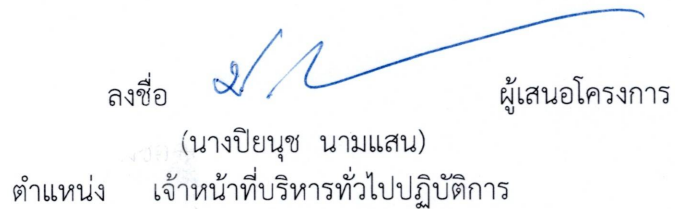 ลงชื่อ ผู้เสนอโครงการ
(นางปิยนุช นามแสน)
ตำแหน่ง เจ้าหน้าที่บริหารทั่วไปปฏิบัติการ